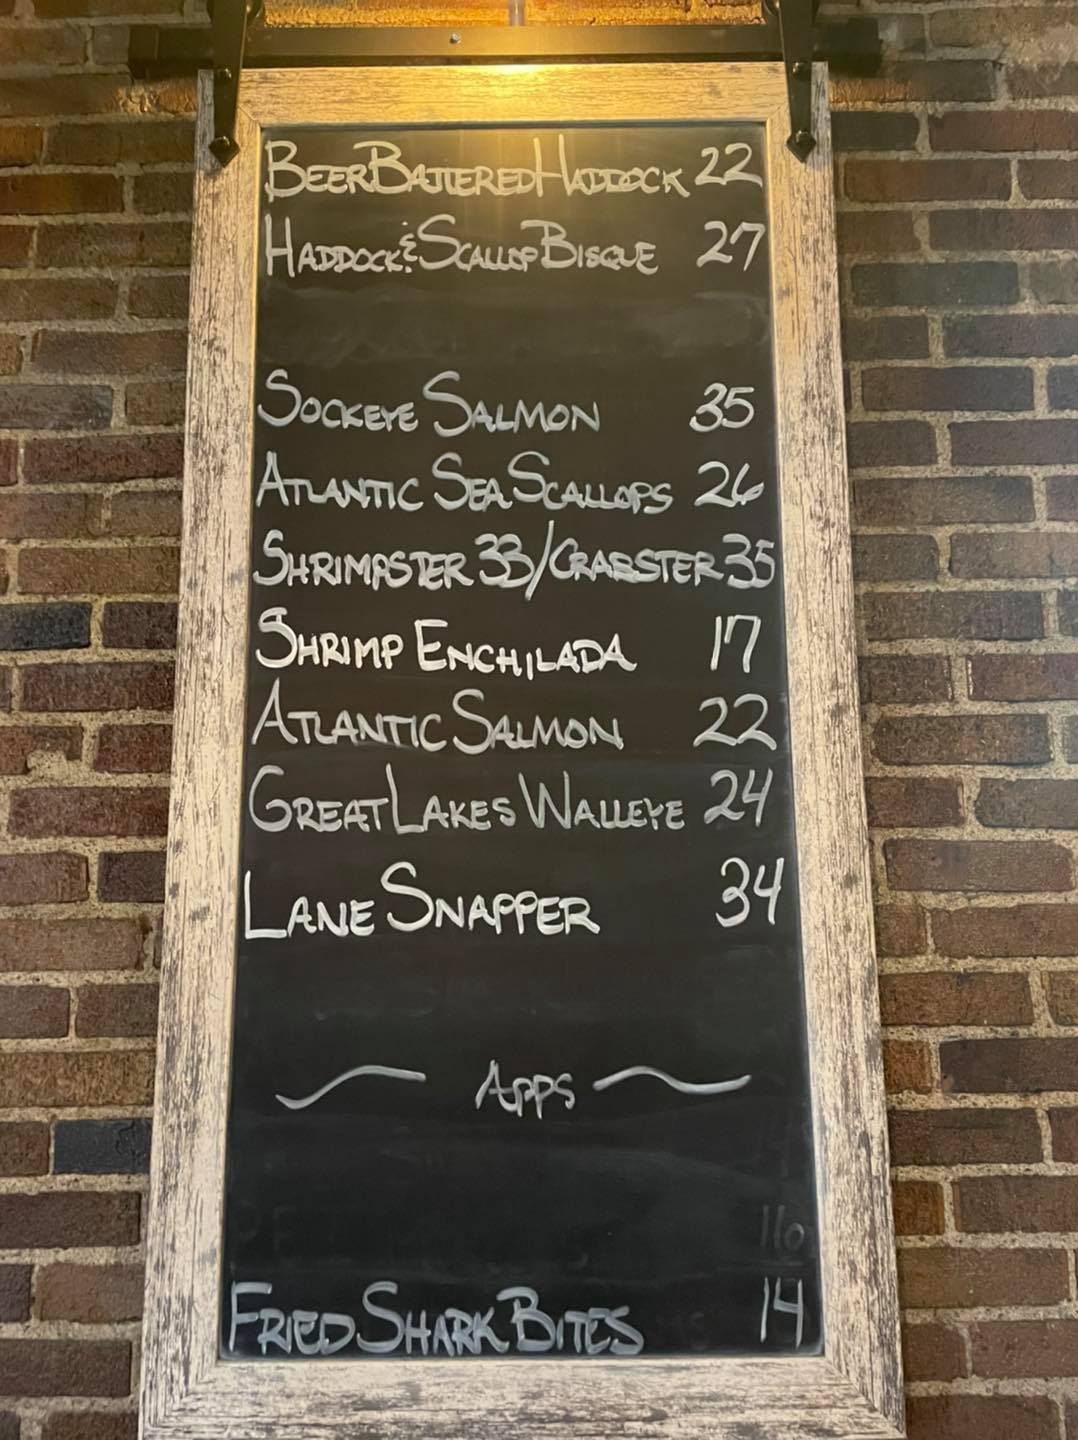 BEER BATTERED HADDOCK 22
HADDOCK & SCALLOP BISQUE 27
SOCKEYE SALMON 35
ATLANTIC SEA SCALLOPS 26
SHRIMPSTER 33/CRABSTER 35
SHRIMP ENCHILADA 17
ATLANTIC SALMON 22
GREAT LAKES WALLEYE 24
LANE SNAPPER 34
APPS
16
FRIED SHARK BITES 14